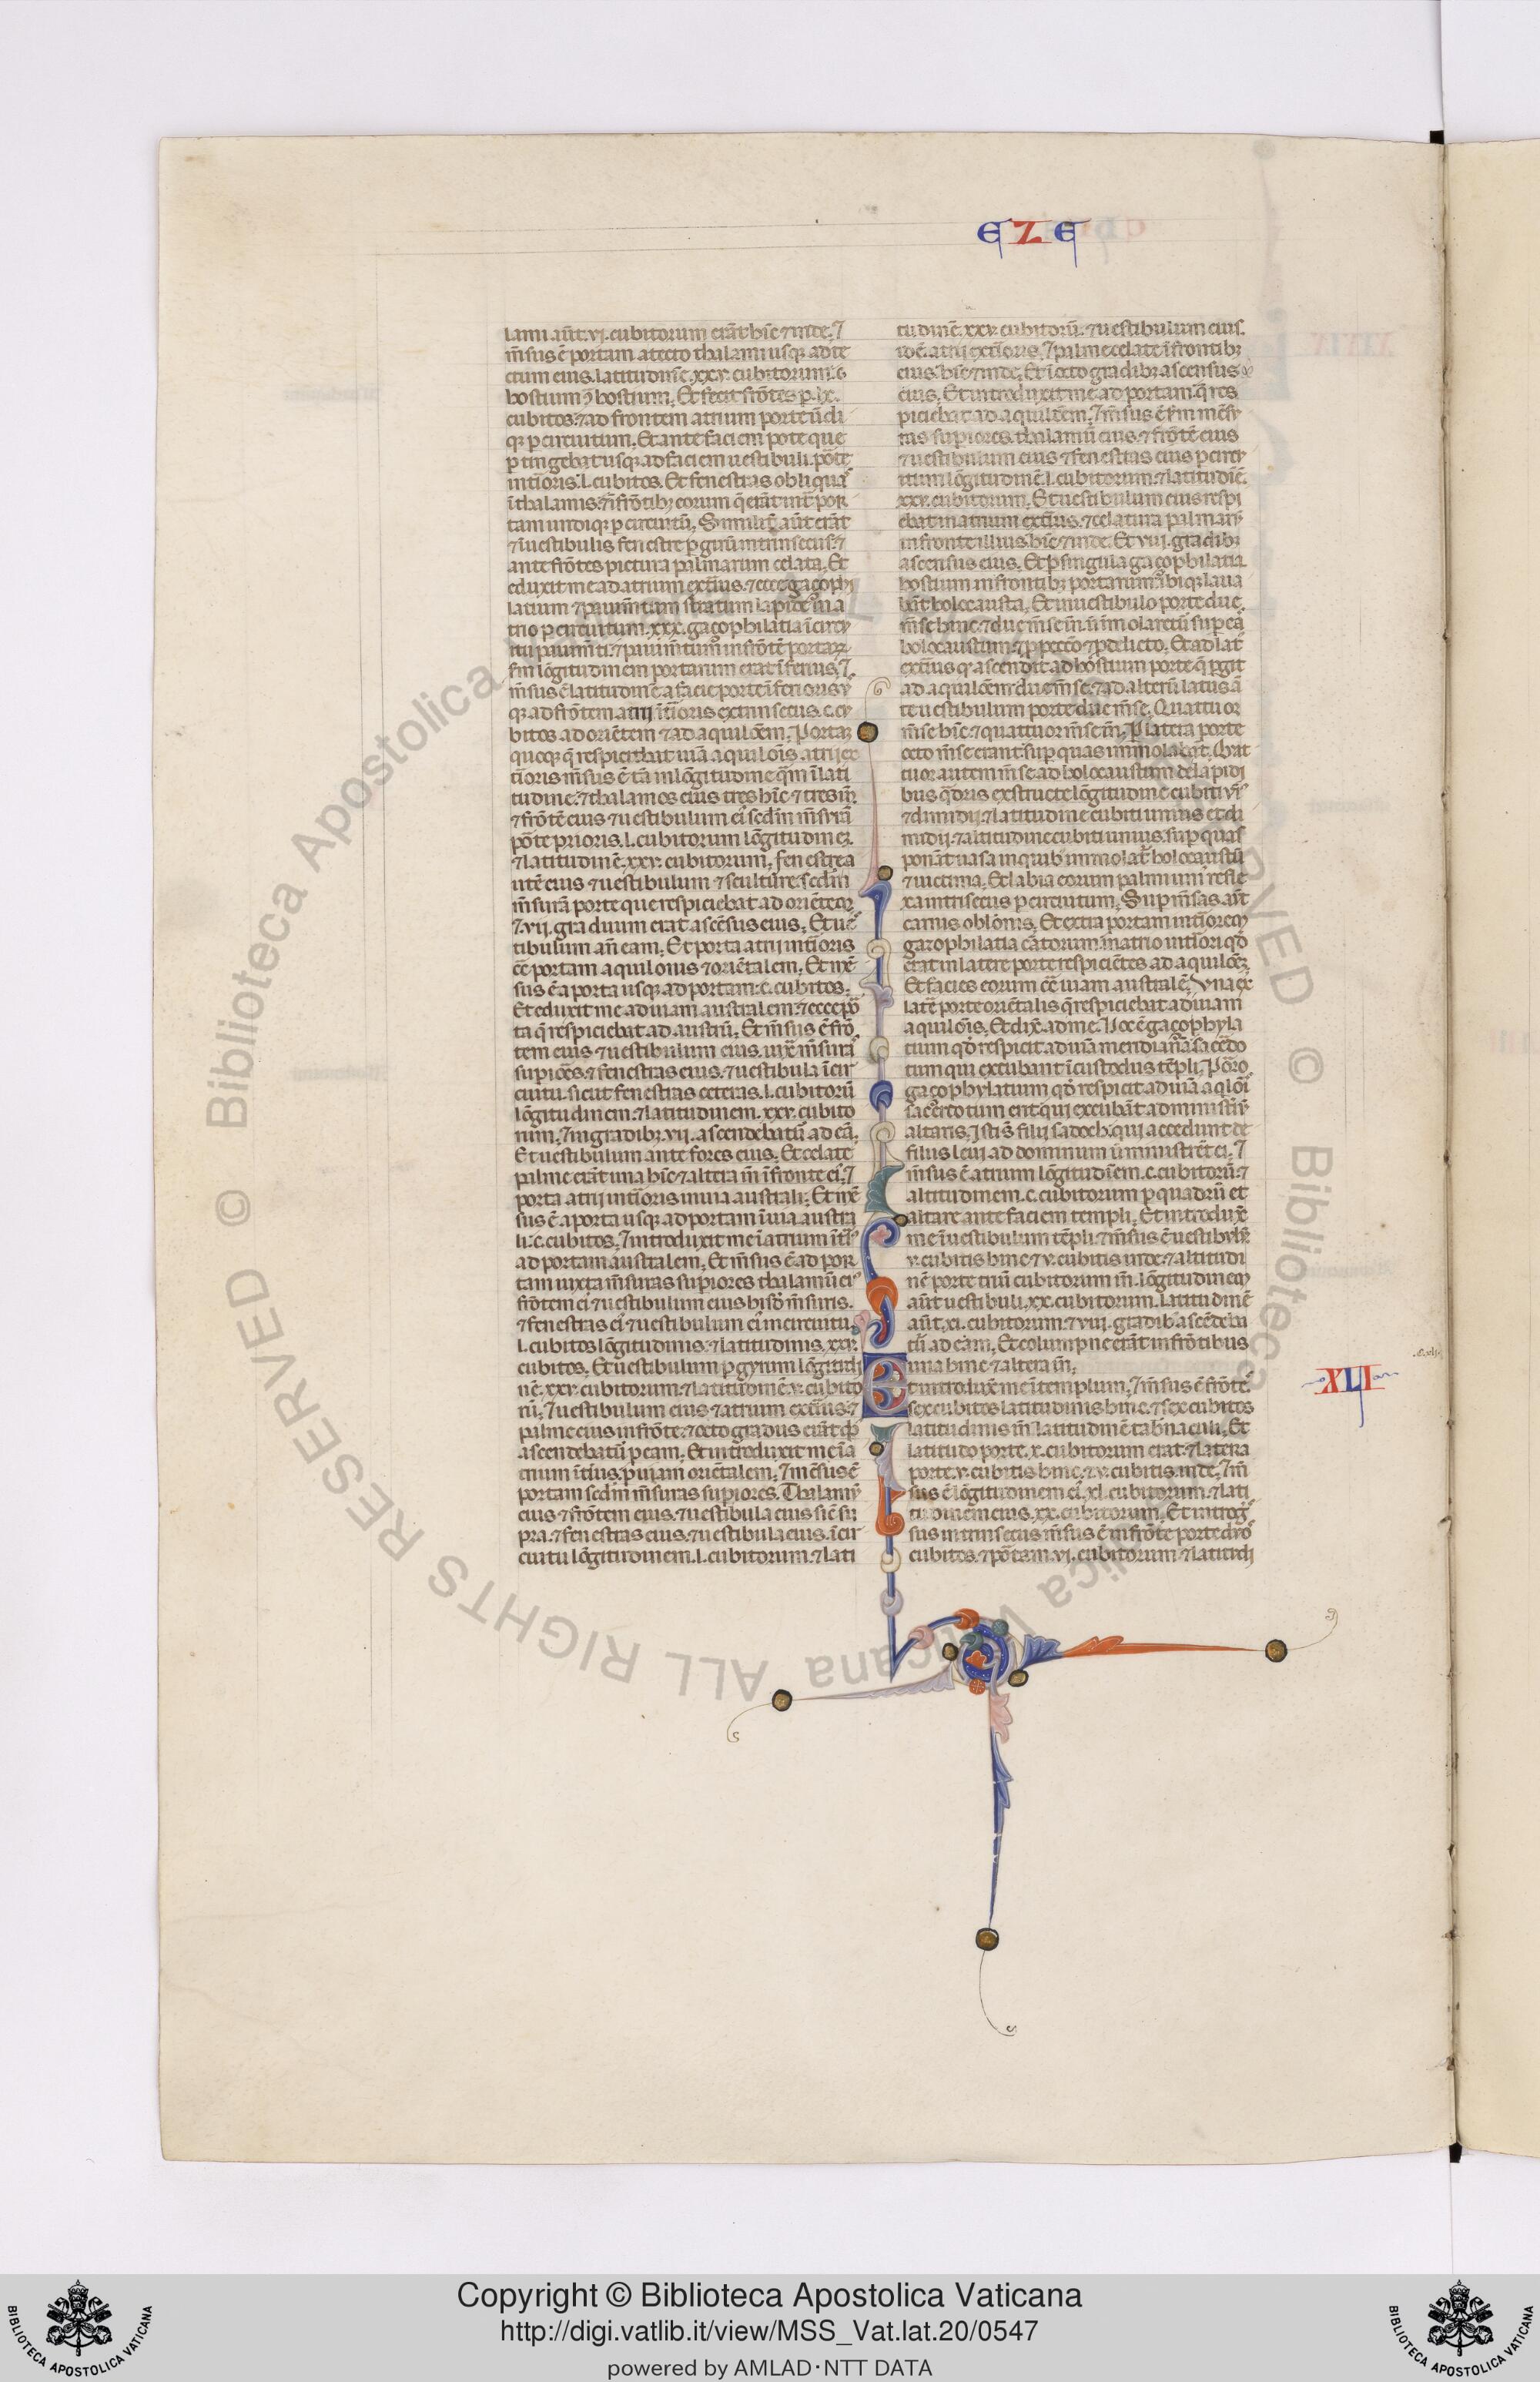 EZE
lami aũt .vi. cubitorum erãt hĩc ⁊ inde. ⁊
m̃sus ẽ portam a tecto thalami usq; ad te
ctum eius. latitudinẽ .xxv. cubitorum.
hostium ↄ̃ hostium. Et fecit frõtes p̱ .lx.
cubitos. ⁊ ad frontem atrium porte ũdi
q; p̱ circuitum. Et ante faciem pote que
p̱tingebat usq; ad faciem uestibuli põte
inti̾oris .l. cubitos. Et fenestras obliquas
ĩ thalamis. ⁊ ĩ frõtib; eorum q̃ erãt int̾ por
tam undiq; p̱ circuitũ. Similit̾ aũt erãt
⁊ ĩ uestibulis fenestre p̱ girũ intrinsecus. ⁊
ante frõtes pictura palmarum celata. Et
eduxit me ad atrium exti̾us. ⁊ ecce gaçophi
latium ⁊ pauim̃tum stratum lapide in a
trio p̱ circuitum. .xxx. gaçophilatia ĩ circu
itu pauim̃ti. ⁊ pauim̃tum in frõtẽ portarꝝ
scd̃m lõgitudinem portarum erat ĩferius. ⁊
m̃sus ẽ latitudinẽ a facie porte ĩferioris us
q; ad frõtem atrij ĩti̾oris extrinsecus .c. cu
bitos ad oriẽtem ⁊ ad aquilõem. Portaꝫ
quoq; q̃ respiciebat uiã aquilõis atrij ex
ti̾oris m̃sus ẽ tã in lõgitudine q̃m ĩ lati
tudine. ⁊ thalamos eius tres hĩc ⁊ tres in̾.
⁊ frõtẽ eius ⁊ uestibulum ei᾽ scd̃m m̃surã
põte prioris .l. cubitorum lõgitudineꝫ.
⁊ latitudinẽ .xxv. cubitorum. fenestre a
utẽ eius ⁊ uestibulum ⁊ sculture. scd̃m
m̃surã porte que respiciebat ad oriẽteꝫ.
⁊ .vii. graduum erat ascẽsus eius. Et ues
tibulum añ eam. Et porta atrii inti̾oris
cõt̾ portam aquilonis ⁊ oriẽtalem. Et m̃
sus ẽ a porta usq; ad portam .c. cubitos.
Et eduxit me ad uiam australem. ⁊ ecce por
ta q̃ respiciebat ad austrũ. Et m̃sus ẽ frõ
tem eius ⁊ uestibulum eius. iux̾ m̃suras
sup̱iões. ⁊ fenestras eius. ⁊ uestibula ĩ cir
cuitu. sicut fenestras ceteras .l. cubitorũ
lõgitudinem. ⁊ latitudinem .xxv. cubito
rum. ⁊ in gradib; .vii. ascendebatur̾ ad eã.
Et uestibulum ante fores eius. Et celate
palme erãt una hĩc ⁊ altera in̾ ĩ fronte ei᾽. ⁊
porta atrij inti̾oris in uia australi. Et m̃
sus ẽ a porta usq; ad portam ĩ uia austra
li .c. cubitos. ⁊ introduxit me ĩ atrium ĩt̾i᾽
ad portam australem. Et m̃sus ẽ ad por
tam iuxta m̃suras sup̱iores thalamũ ei᾽
frõtem ei᾽ ⁊ uestibulum eius hisd̾ m̃suris.
⁊ fenestras ei᾽ ⁊ uestibulum ei᾽ in circuitu
.l. cubitos lõgitudinis. ⁊ latitudinis .xxv.
cubitos. Et uestibulum p̱ gyrum lõgitudi
nẽ .xxv. cubitorum. ⁊ latitudinẽ .v. cubito
rũ. ⁊ uestibulum eius ⁊ atrium exti̾us. ⁊
palme eius in frõte. ⁊ octo gradus erãt qb᾽
ascendebatur̾ p̱ eam. Et introduxit me ĩ a
trium ĩti̾us p̱ uiam oriẽtalem. ⁊ mẽsus ẽ
portam scd̃m m̃suras sup̱iores. Thalamũ
eius ⁊ frõtem eius. ⁊ uestibula eius sic̃ su
pra. ⁊ fenestras eius. ⁊ uestibula eius ĩ cir
cuitu lõgitudinem .l. cubitorum. ⁊ lati
tudinẽ .xxv. cubitorũ. ⁊ uestibulum eius.
id ẽ. atrij exti̾oris. ⁊ palme celate ĩ frontib;
eius. hĩc ⁊ inde. Et ĩ octo gradib; ascensus
eius. Et introduxit me ad portam q̃ res
piciebat ad aquilõem. ⁊ m̃sus ẽ s̾m mẽsu
ras sup̱iores. thalamũ eius. ⁊ frõtẽ eius
⁊ uestibulum eius ⁊ fenestras eius p̱ circu
itum lõgitudinẽ .l. cubitorum. ⁊ latitudiẽ
.xxv. cubitorum. Et uestibulum eius respi
ebat in atrium exti̾us. ⁊ celatura palmarũ
in fronte illius hĩc ⁊ inde. Et .viij. gradib;
ascensus eius. Et p̱ singula gaçophilatia
hostium in frontib; portarum. ibiq; laua
bãt holocausta. Et in uestibulo porte due
m̃se hinc. ⁊ due m̃se in̾. ut̾ ĩmolaretur̾ sup̱ ea
holocaustum ⁊ p̱ pecc̃o ⁊ p̱ delicto. Et ad lat᾽
exti̾us q᾽ ascendit ad hostium porte q̃ p̱git
ad aquilõem. due m̃se. ⁊ ad alterũ latus ã
te uestibulum porte due m̃se. Quattuor
m̃se hĩc. ⁊ quattuor m̃se in̾. P̱ latera porte
octo m̃se erant. sup̱ quas immolabãt. Q̾at
tuor autem m̃se ad holocaustum de lapidi
bus q̾dris exstructe. lõgitudine cubiti uni᾽
⁊ dimidij. ⁊ latitudine cubiti unius et di
midij. ⁊ altitudine cubiti unius. sup̱ quas
ponãt uasa in quib᾽ immolat᾽ holocaustũ
⁊ uictima. Et labia eorum palmi uni᾽ refle
xa intrĩsecus p̱ circuitum. Sup̱ m̃sas aũt
carnis oblõnis. Et extra portam inti̾orem
gazophilatia cãtorum in atrio inti̾ori qd̾
erat in latere porte respiciẽtes ad aquilõeꝫ.
Et facies eorum cõt̾ uiam australẽ. Vna ex
later̾e porte oriẽtalis q̃ respiciebat ad uiam
aquilõis. Et dix̾ ad me. Hoc ẽ gaçophyla
tium qd̾ respicit ad uiã meridianã sac̾edo
tum qui excubant ĩ custodiis tẽpli. Porro
gaçophylatium qd̾ respicit ad uiã aq̾lõi᾽
sac̾erdotum erit qui excubãt ad minist̾iũ
altaris. Isti s̃ filij sadoch. qui accedunt de
filius leui ad dominum ut̾ ministrẽt ei. ⁊
m̃sus ẽ atrium lõgitudĩem .c. cubitorũ. ⁊
altitudinem .c. cubitorum p̱ quadrũ et
altare ante faciem templi. Et introdux̾
me ĩ uestibulum tẽpli. ⁊ m̃sus ẽ uestibulũ
.v. cubitis hinc ⁊ .v. cubitis inde. ⁊ altitudi
nẽ porte triũ cubitorum in̾. lõgitudinem
aũt uestibuli .xx. cubitorum. latitudinẽ
aũt .xi. cubitorum. ⁊ .viij. gradib᾽ ascẽdeba
tur̾ ad eam. Et columpne erãt in frõtibus
una hinc. ⁊ altera in̾.
XLI
Et introdux̾ me ĩ templum. ⁊ m̃sus ẽ frõtes
sex cubitos latitudinis hinc. ⁊ sex cubitos
latitudinis in̾. latitudinẽ tab̾naculi. Et
latitudo porte .x. cubitorum erat. ⁊ latera
porte .v. cubitis hinc. ⁊ .v. cubitis inde. ⁊ m̃
sus ẽ lõgitudinem ei᾽ .xl. cubitorum. ⁊ lati
tudinem eius .xx. cubitorum. Et introgs̾
sus intrinsecus m̃sus ẽ in frõte porte duos
cubitos. ⁊ põtam .vi. cubitorum. ⁊ latitudi
Copyright © Biblioteca Apostolica Vaticana
http://digi.vatlib.it/view/MSS_Vat.lat.20/0547
powered by AMLAD·NTT DATA
BIBLIOTECA APOSTOLICA VATICANA
BIBLIOTECA APOSTOLICA VATICANA
© Biblioteca Apostolica Vaticana ALL RIGHTS RESERVED